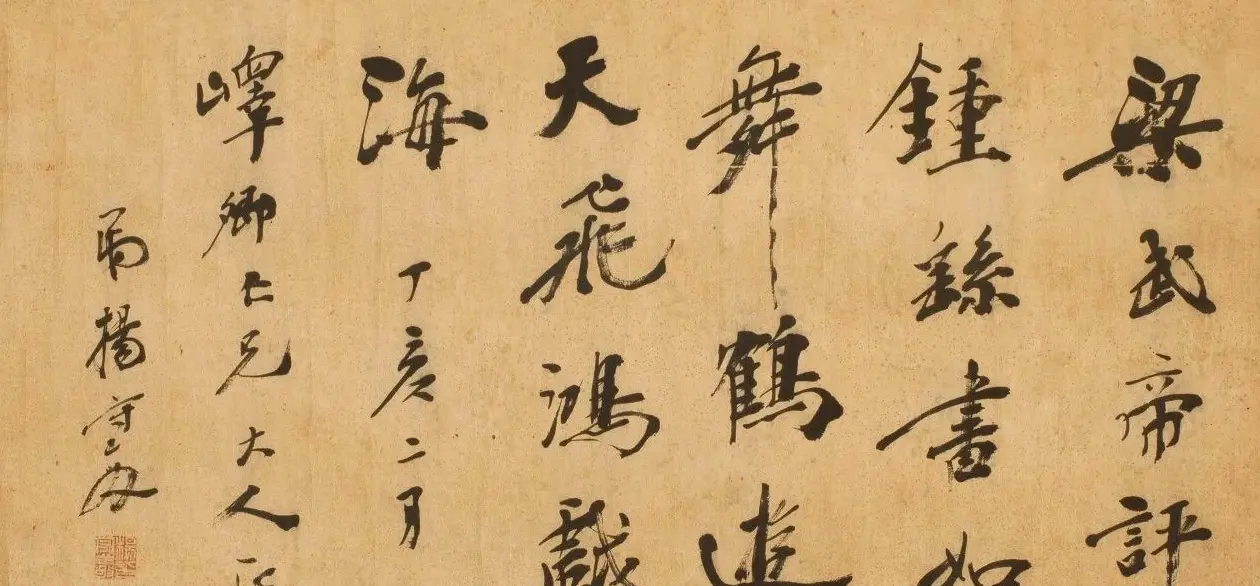 梁武帝評
鍾繇書如
舞鶴遊
天飛鴻戲
海 丁亥二月
嶧卿仁兄大人
弟楊守敬